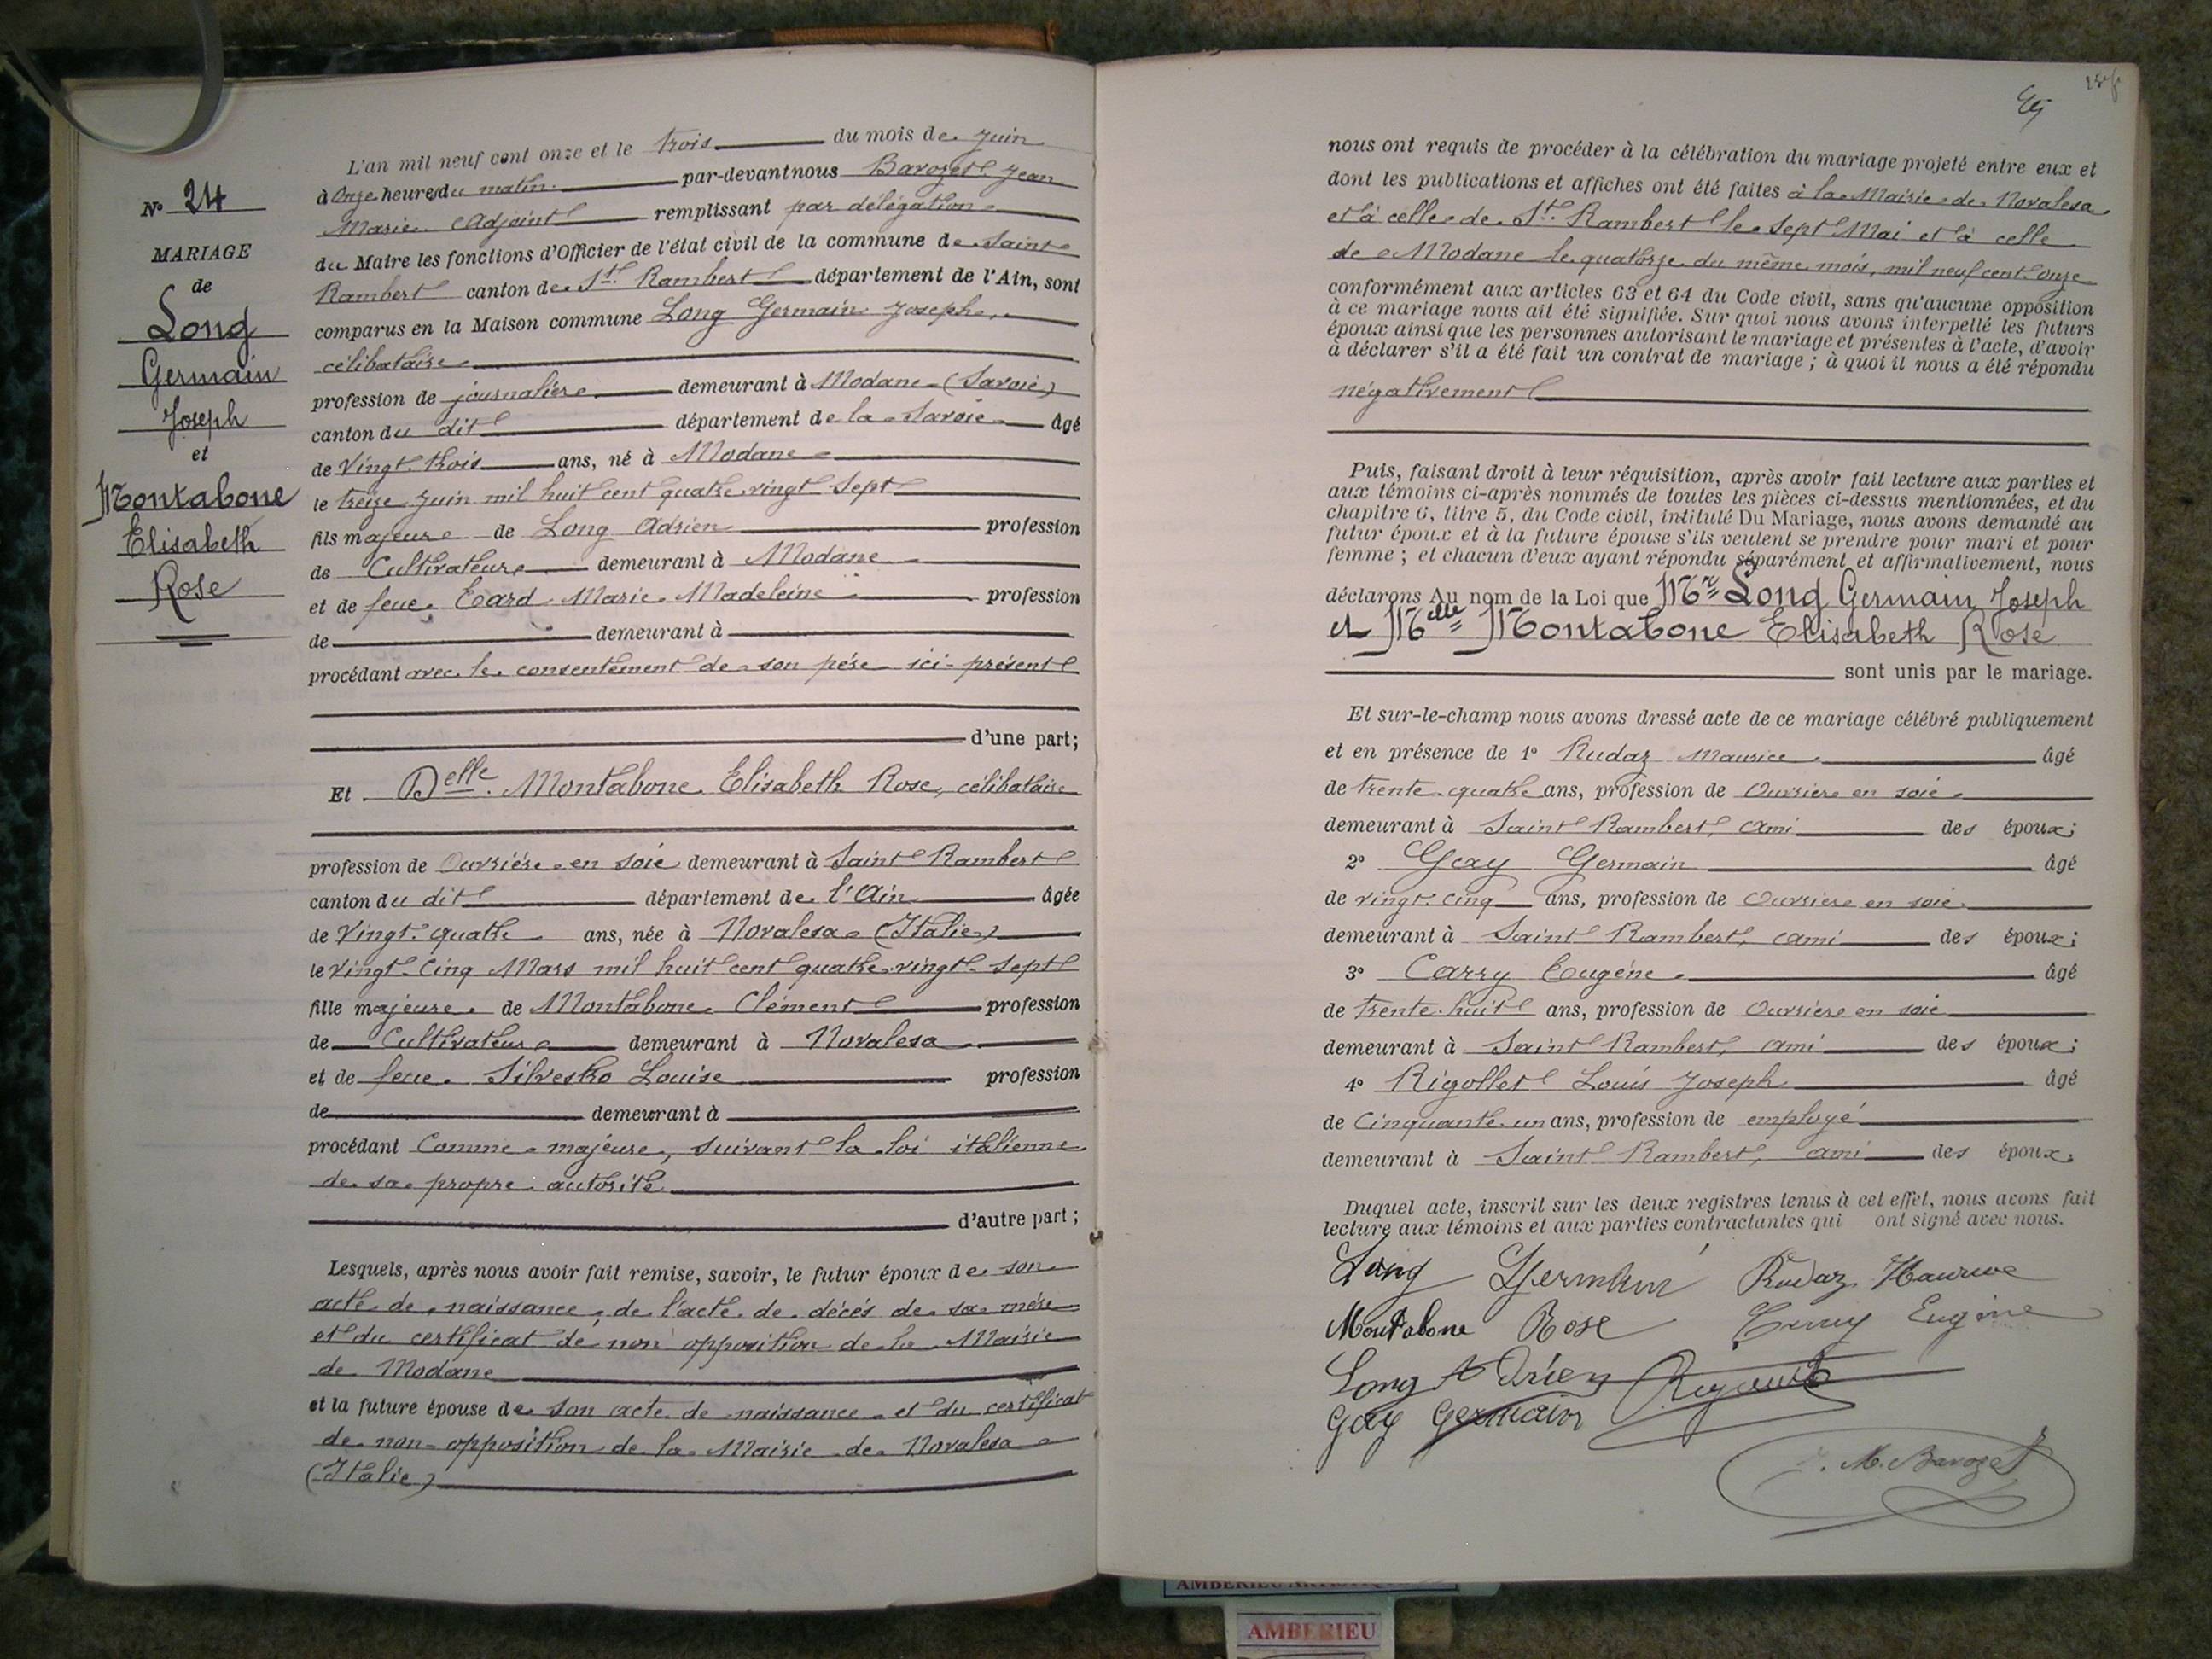 N° 24
MARIAGE
de
Long
Germain
Joseph
et
Montabone
Elisabeth
Rose
L'an mil neuf cent onze et le trois du mois de Juin
à Onze heures du matin par-devant nous Barozet Jean
Marie Adjoint remplissant par délégation
du Maire les fonctions d'Officier de l'état civil de la commune de Saint
Rambert canton de St. Rambert département de l'Ain, sont
comparus en la Maison commune Long Germain Joseph,
célibataire
profession de journalier demeurant à Modane (Savoie)
canton du dit département de la Savoie âgé
de Vingt trois ans, né à Modane
le treize Juin mil huit cent quatre vingt sept
fils majeur de Long Adrien profession
de Cultivateur demeurant à Modane
et de feue Eard Marie Madeleine profession
de demeurant à
procédant avec le consentement de son père ici présent
d'une part;
Et Delle Montabone Elisabeth Rose, célibataire
profession de Ouvrière en soie demeurant à Saint Rambert
canton du dit département de l'Ain âgée
de Vingt quatre ans, née à Novalesa (Italie)
le Vingt Cinq Mars mil huit cent quatre vingt sept
fille majeure de Montabone Clément profession
de Cultivateur demeurant à Novalesa
et de feue Silvestro Louise profession
de demeurant à
procédant Comme majeure, suivant la loi italienne
de sa propre autorité
d'autre part;
Lesquels, après nous avoir fait remise, savoir, le futur époux de son
acte de naissance, de l'acte de décès de sa mère
et du certificat de non opposition de la Mairie
de Modane
et la future épouse de son acte de naissance et du certificat
de non-opposition de la Mairie de Novalesa
(Italie)
nous ont requis de procéder à la célébration du mariage projeté entre eux et
dont les publications et affiches ont été faites à la Mairie de Novalesa
et à celle de St. Rambert le sept Mai et à celle
de Modane le quatorze du même mois, mil neuf cent onze
conformément aux articles 63 et 64 du Code civil, sans qu'aucune opposition
à ce mariage nous ait été signifiée. Sur quoi nous avons interpellé les futurs
époux ainsi que les personnes autorisant le mariage et présentes à l'acte, d'avoir
à déclarer s'il a été fait un contrat de mariage; à quoi il nous a été répondu
négativement
Puis, faisant droit à leur réquisition, après avoir fait lecture aux parties et
aux témoins ci-après nommés de toutes les pièces ci-dessus mentionnées, et du
chapitre 6, titre 5, du Code civil, intitulé Du Mariage, nous avons demandé au
futur époux et à la future épouse s'ils veulent se prendre pour mari et pour
femme; et chacun d'eux ayant répondu séparément et affirmativement, nous
déclarons Au nom de la Loi que Mr Long Germain Joseph
et Melle Montabone Elisabeth Rose
sont unis par le mariage.
Et sur-le-champ nous avons dressé acte de ce mariage célébré publiquement
et en présence de 1° Rudaz Maurice âgé
de trente quatre ans, profession de Ouvrier en soie
demeurant à Saint Rambert, ami des époux;
2° Gay Germain âgé
de vingt cinq ans, profession de Ouvrier en soie
demeurant à Saint Rambert, ami des époux;
3° Carry Eugène âgé
de trente huit ans, profession de Ouvrier en soie
demeurant à Saint Rambert, ami des époux;
4° Rigollet Louis Joseph âgé
de Cinquante un ans, profession de employé
demeurant à Saint Rambert, ami des époux.
Duquel acte, inscrit sur les deux registres tenus à cet effet, nous avons fait
lecture aux témoins et aux parties contractantes qui ont signé avec nous.
Long Germain Rudaz Maurice
Montabone Rose Carry Eugène
Long Adrien
Gay Germain
J. M. Barozet
AMBERIEU